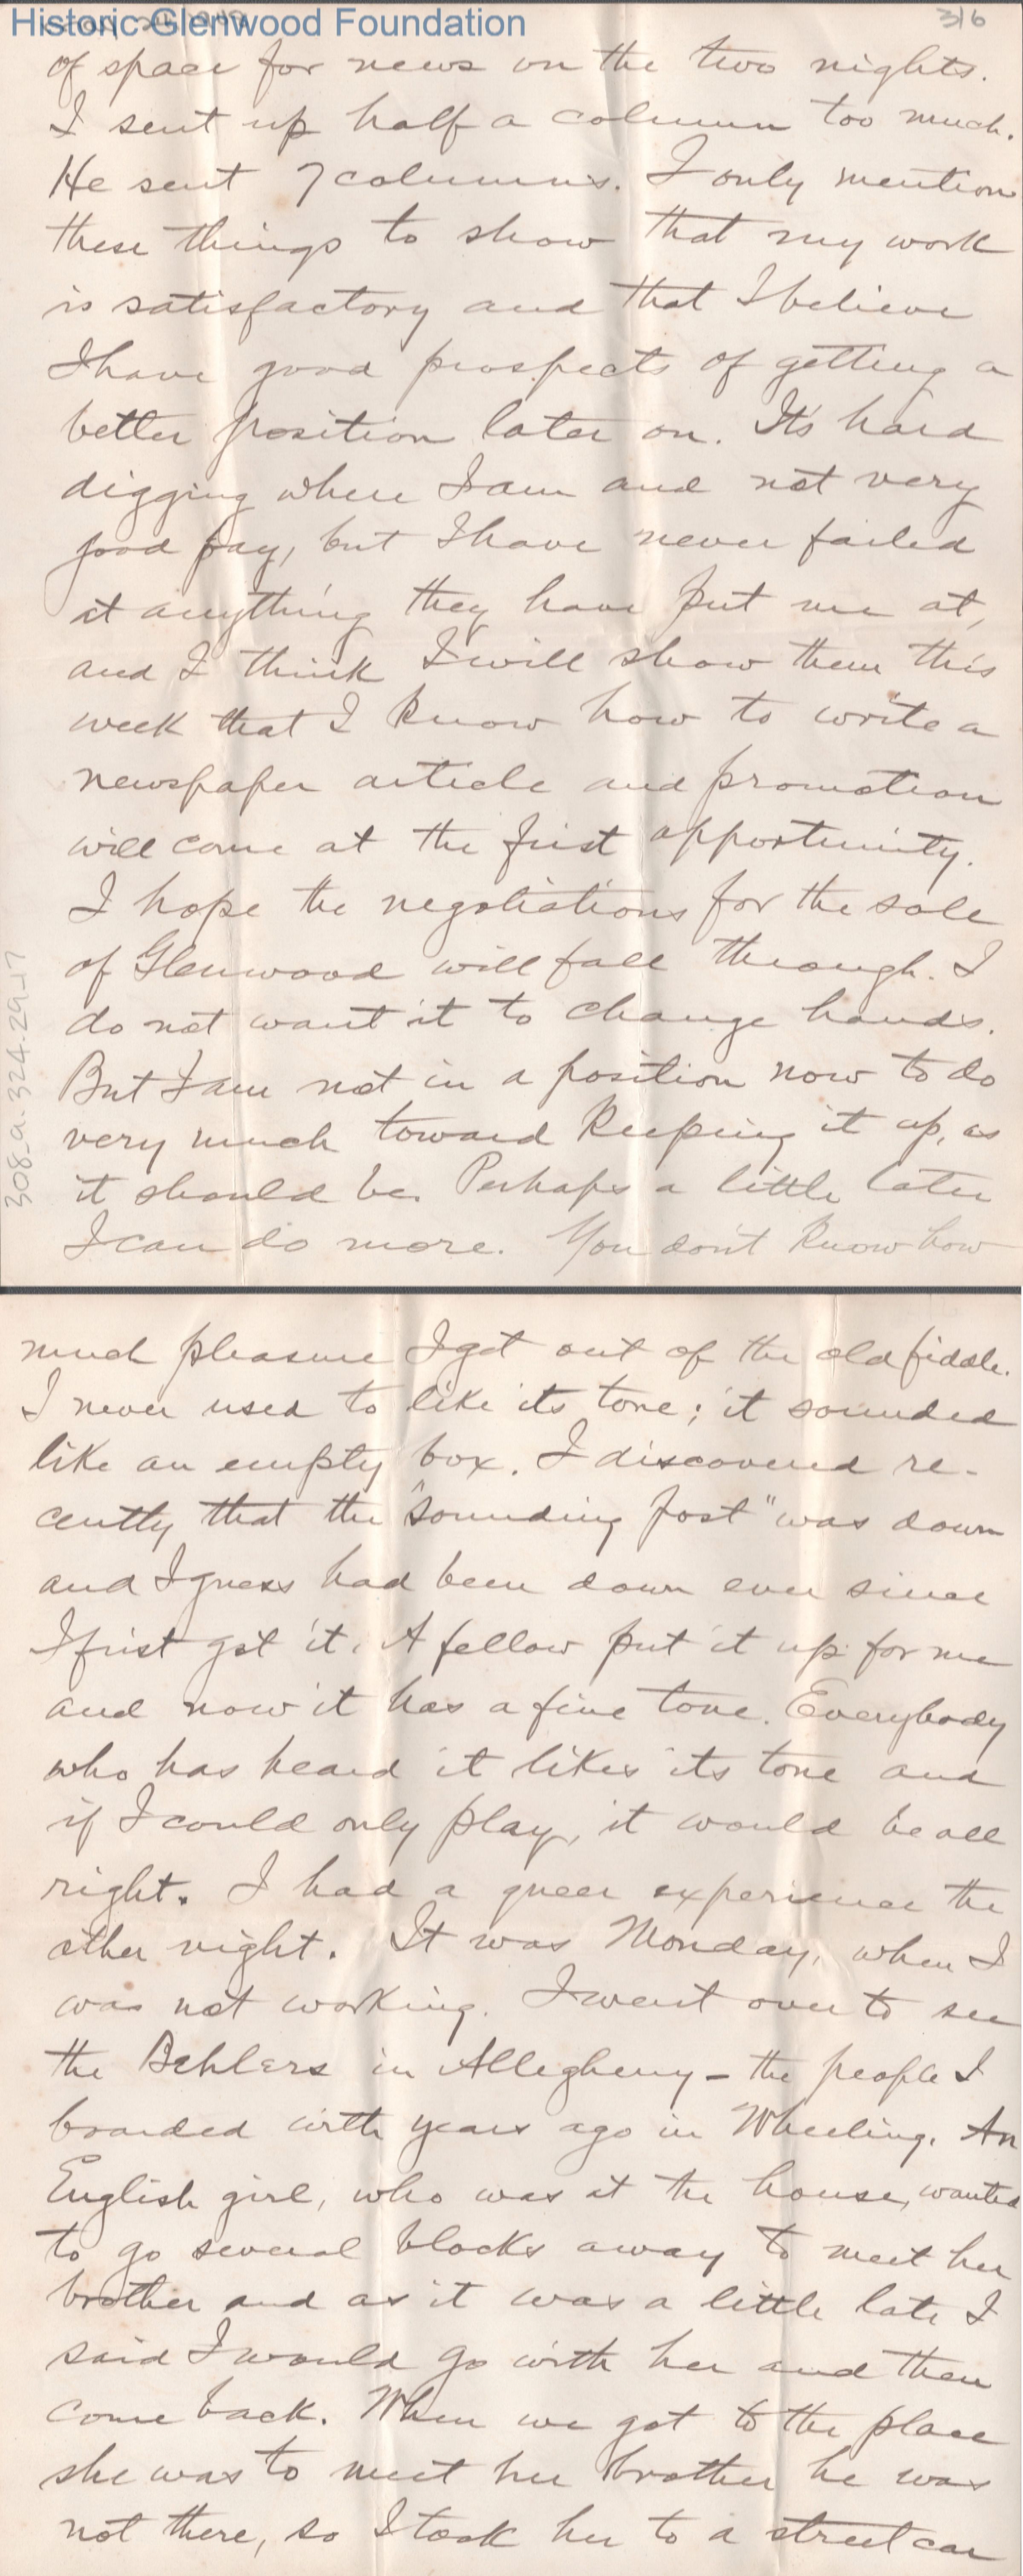 Historic Glenwood Foundation
316
of space for news on the two nights.
I sent up half a column too much.
He sent 7 columns. I only mention
these things to show that my work
is satisfactory and that I believe
I have good prospects of getting a
better position later on. It's hard
digging where I am and not very
good pay, but I have never failed
at anything they have put me at,
and I think I will show them this
week that I know how to write a
newspaper article and promotion
will come at the first opportunity.
I hope the negotiations for the sale
of Glenwood will fall through. I
do not want it to change hands.
But I am not in a position now to do
very much toward keeping it up, as
it should be. Perhaps a little later
I can do more. You don't know how
308-a.324.29-17
much pleasure I get out of the old fiddle.
I never used to like its tone; it sounded
like an empty box. I discovered re-
cently that the "sounding post" was down
and I guess had been down ever since
I first got it. A fellow put it up for me
and now it has a fine tone. Everybody
who has heard it likes its tone and
if I could only play, it would be all
right. I had a queer experience the
other night. It was Monday, when I
was not working. I went over to see
the Behlers in Allegheny – the people I
boarded with years ago in Wheeling. An
English girl, who was at the house, wanted
to go several blocks away to meet her
brother and as it was a little late I
said I would go with her and then
come back. When we got to the place
she was to meet her brother he was
not there, so I took her to a street car